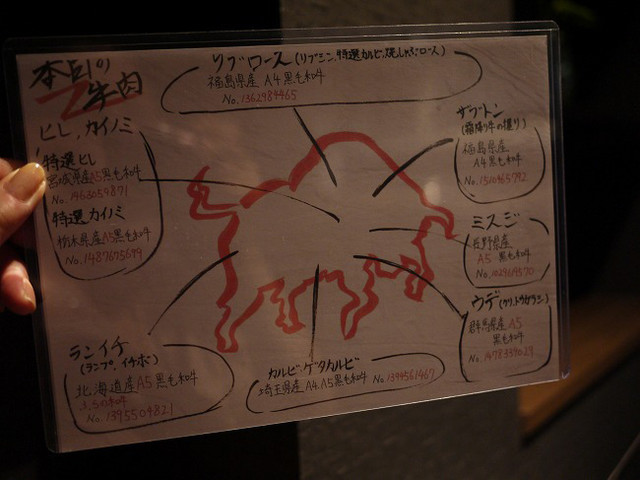 本日の
牛肉
リブロース (リブシン、特選カルビ、焼しゃぶロース)
福島県産 A4 黒毛和牛
No. 1362984465
ヒレ、カイノミ
特選ヒレ
宮城県産A5黒毛和牛
No. 1463059871
特選カイノミ
栃木県産A5黒毛和牛
No. 1487675699
ザブトン
(霜降り牛の握り)
福島県産
A4黒毛和牛
No. 1510465792
ミスジ
長野県産
A5 黒毛和牛
ウデ
群馬県産 A5
黒毛和牛
ランイチ
(ランプ、イチボ)
北海道産A5黒毛和牛
ふらの和牛
No. 1395504821
カルビ・ゲタカルビ
埼玉県産 A4.A5黒毛和牛 No. 1394561467